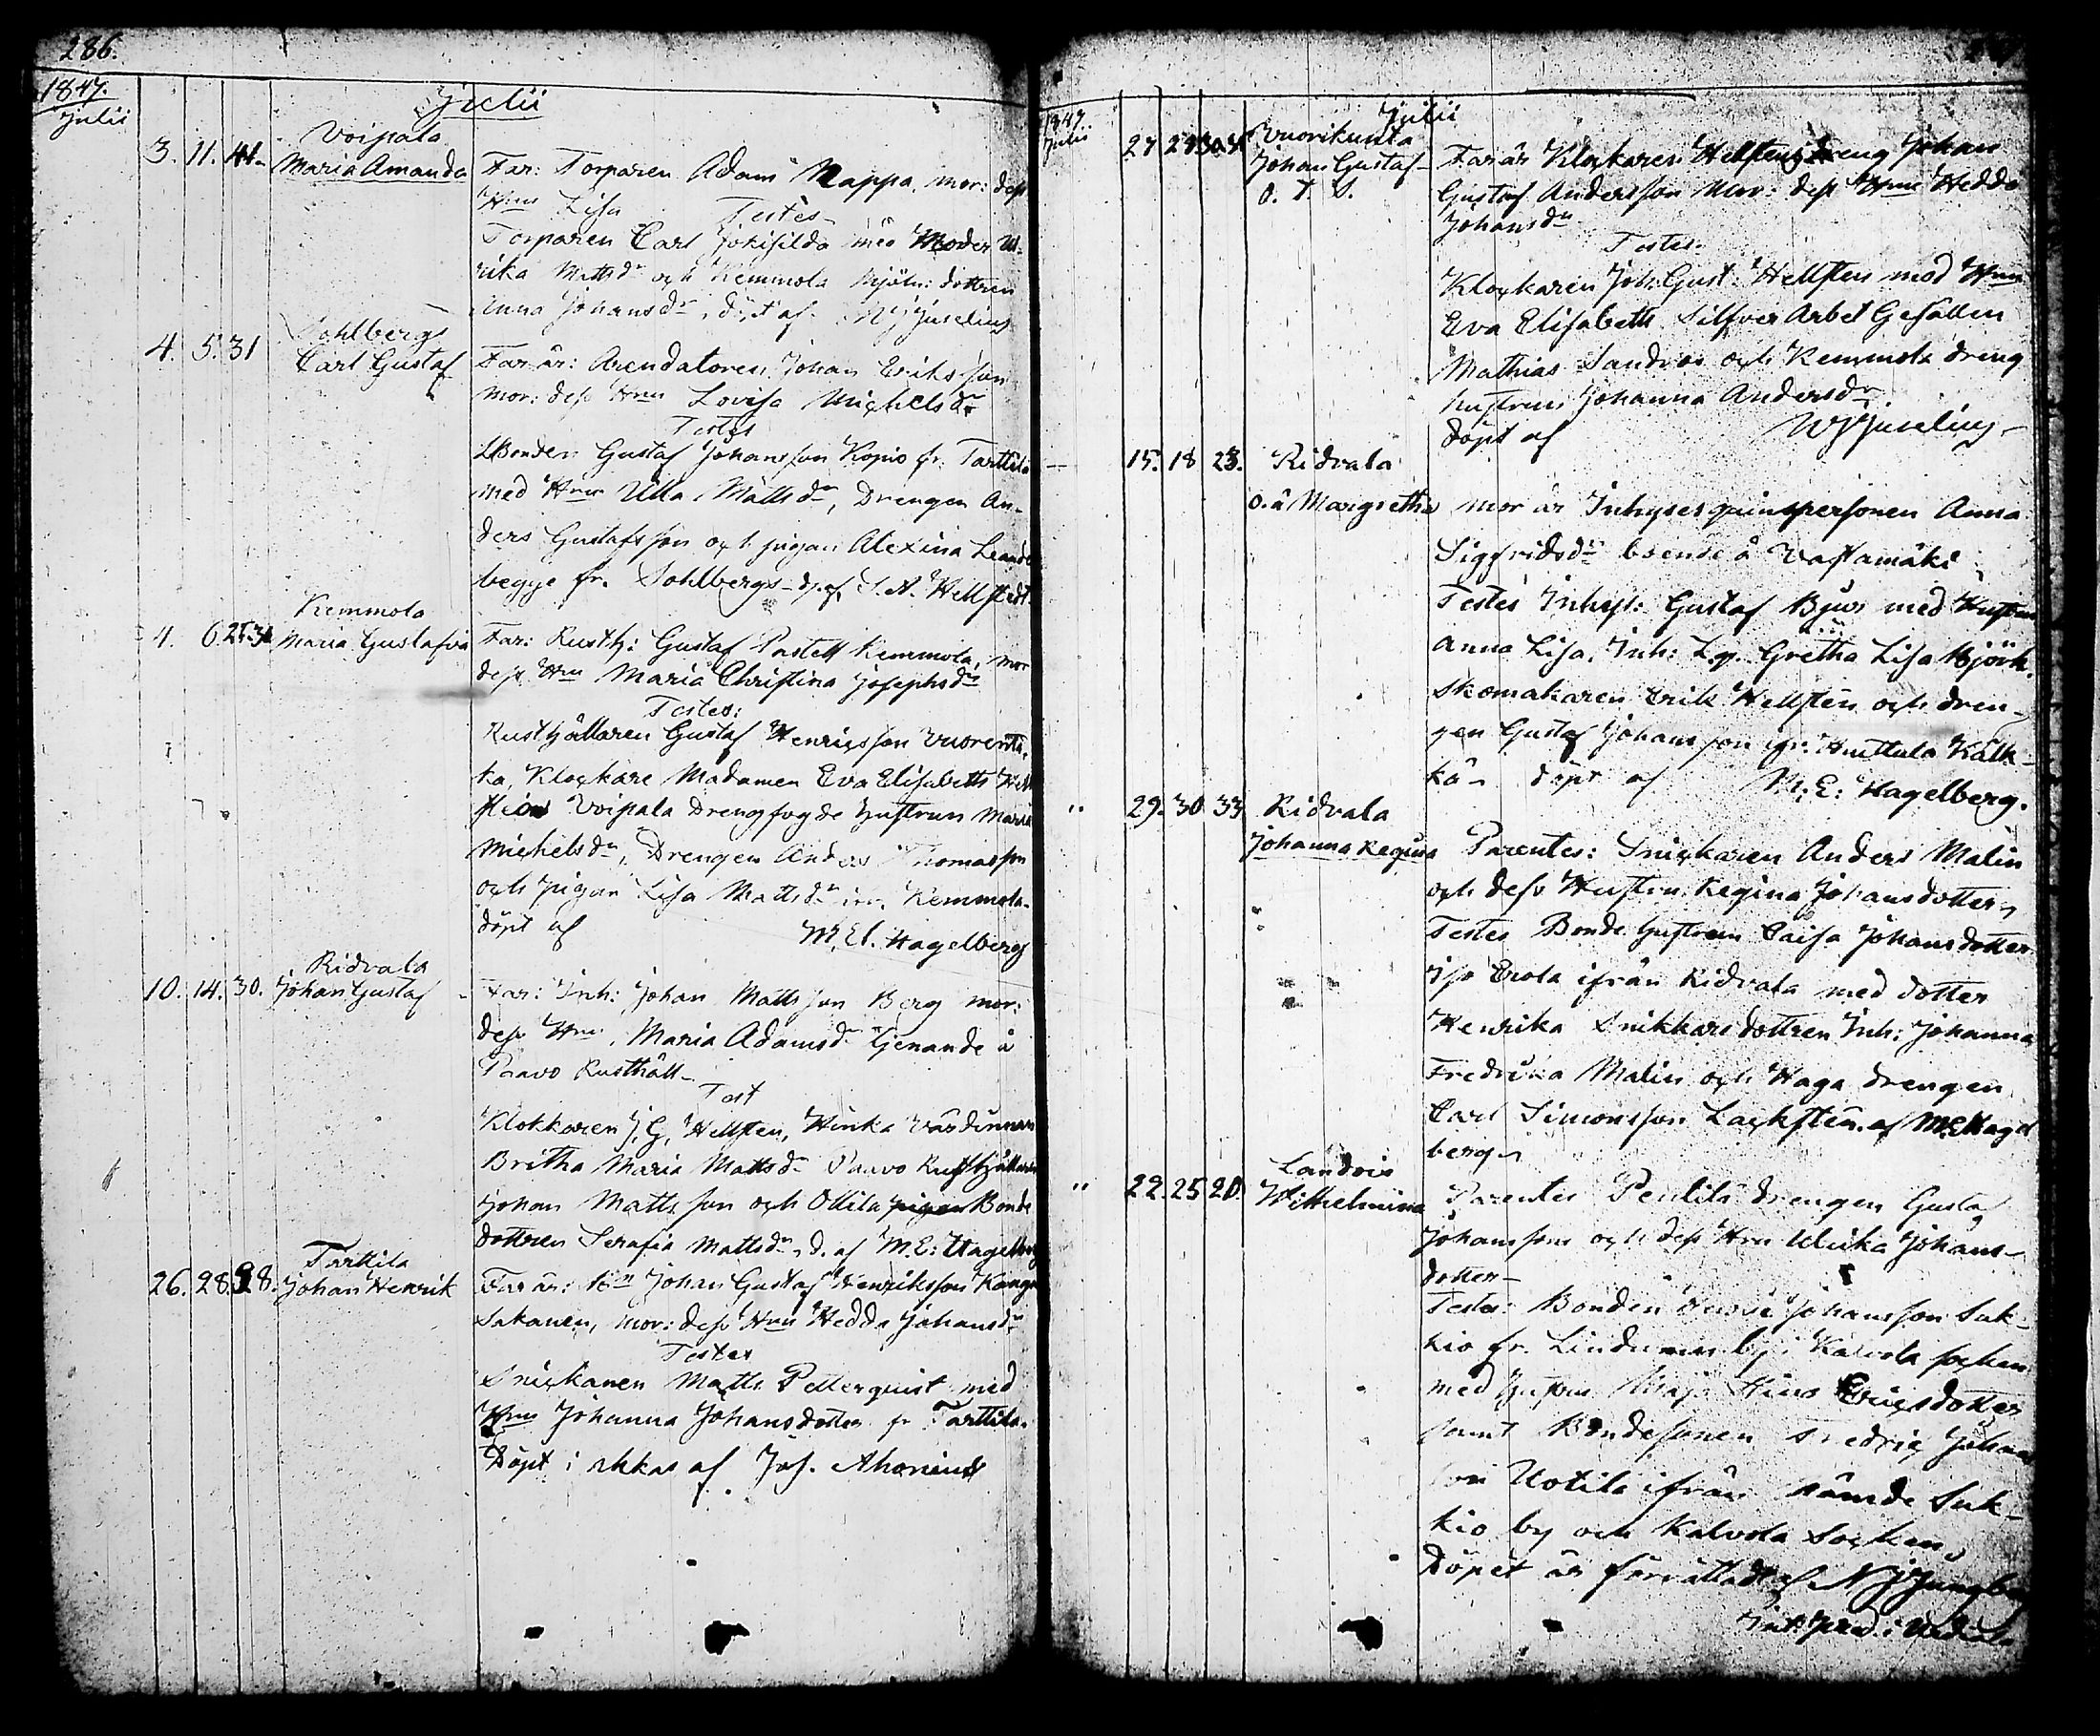 286.
1847.
Julii
Julii
Voipala
3. 11. 41. Maria Amanda
Far: Torparen Adam Nappa, mor: dess
Hru Lisa Testes
Torparen Carl Jokisilda med Moder Ul-
rika Mattsdr och Kemmola Mjöln: dottren
Anna Johansdr, döpt af
Sohlberg
4. 5. 31 Carl Gustaf
Far är: Arendatoren Johan Eriksson
mor: dess Hru Lovisa Michelsdr
Testes
Bonden Gustaf Johansson Kopio fr. Tarttila
med Hru Ulla Mattsdr, Drengen An-
ders Gustafsson och pigan Alexina
begge fr. Sohlbergs - dp. af S. A. Hellstedt
Kemmola
4. 6. Maria Gustafva
Far: Rusth: Gustaf Pastell Kemmola, mor
dess Hru Maria Christina Josephsdr
Testes:
Rusthållaren Gustaf Henricsson Vuorenta,
ka, Klockare Madamen Eva Elisabeth Hell
sten Voipala Drengfogde hustrun Maria
Michelsdr, Drengen Anders Thomasson
och pigan Lisa Mattsdr ifr. Kemmola.
döpt af M. E. Hagelberg
Ridvala
10. 14. 30. Johan Gustaf
Far: Inh: Johan Mattsson Berg mor:
dess Hru Maria Adamsdr tjenande å
Paavo Rusthåll
Test
Klokkaren J. G. Hellsten, Hinka Värdinnan
Britha Maria Mattsdr Paavo Rusthållaren
Johan Mattsson och Ollila pigan Bonde
dottren Serafia Mattsdr, d. af M. E: Hagelberg
Tarttila
26. 28. 28. Johan Henrik
Far är: Johan Gustaf Henriksson
Sakanen, mor: dess Hru Hedda Johansdr
Testes
Snickaren Matts Petterquist med
Hru Johanna Johansdotter fr Tarttila.
Döpt i Akkas af Jos. Ahonius
1847
Julii
Julii
Vuorikunta
27 Johan Gustaf
O. T. S.
Far är Klockaren Hellstens dreng Johan
Gustaf Andersson Mor: dess Hru Hedda
Johansdr
Testes.
Klockaren Joh: Gust: Hellsten med Hru
Eva Elisabeth Silfver Arbet Gesällen
Mathias Sandroos och Kemmola dreng
hustrun Johanna Andersdr.
döpt af
15. 18 23. Ridvala
o. ä Margretha
mor är Inhyses qvinspersonen Anna
Sigfridsdr boende å Vastamäki
Testes Inhys: Gustaf Björ med Hustru
Anna Lisa, Inh: Gretha Lisa Björk.
Skomakaren Erik Hellsten och dren-
gen Gustaf Johansson ifr. Huttula Kalk-
döpt af M. E: Hagelberg.
" 29. 30 33 Ridvala
Johanna Regina
Parentes: Snickaren Anders Malin
och dess Hustru Regina Johansdotter
Testes Bonde hustrun Caisa Johansdotter
Erola ifrån Ridvala med dotter
Henrika Snikkare dottren Inh: Johanna
Fredrika Malin och Haga drengen
Carl Simonsson Lackstén. af M. E. Hagel
berg
" 22. 25 20. Landois
Wilhelmina
Parentes Pentilä drengen Gustaf
Johansson och dess Hru Ulrika Johans-
dotter
Testes: Bonden Johansson Suk-
kio fr. by i Kalvola socken
med hustru Maja Stina Ericsdotter
samt Bondesonen Fredric Johans
son Uotila ifrån nämde Suk-
kio by och Kalvola Socken
Döpet är förrättadt af